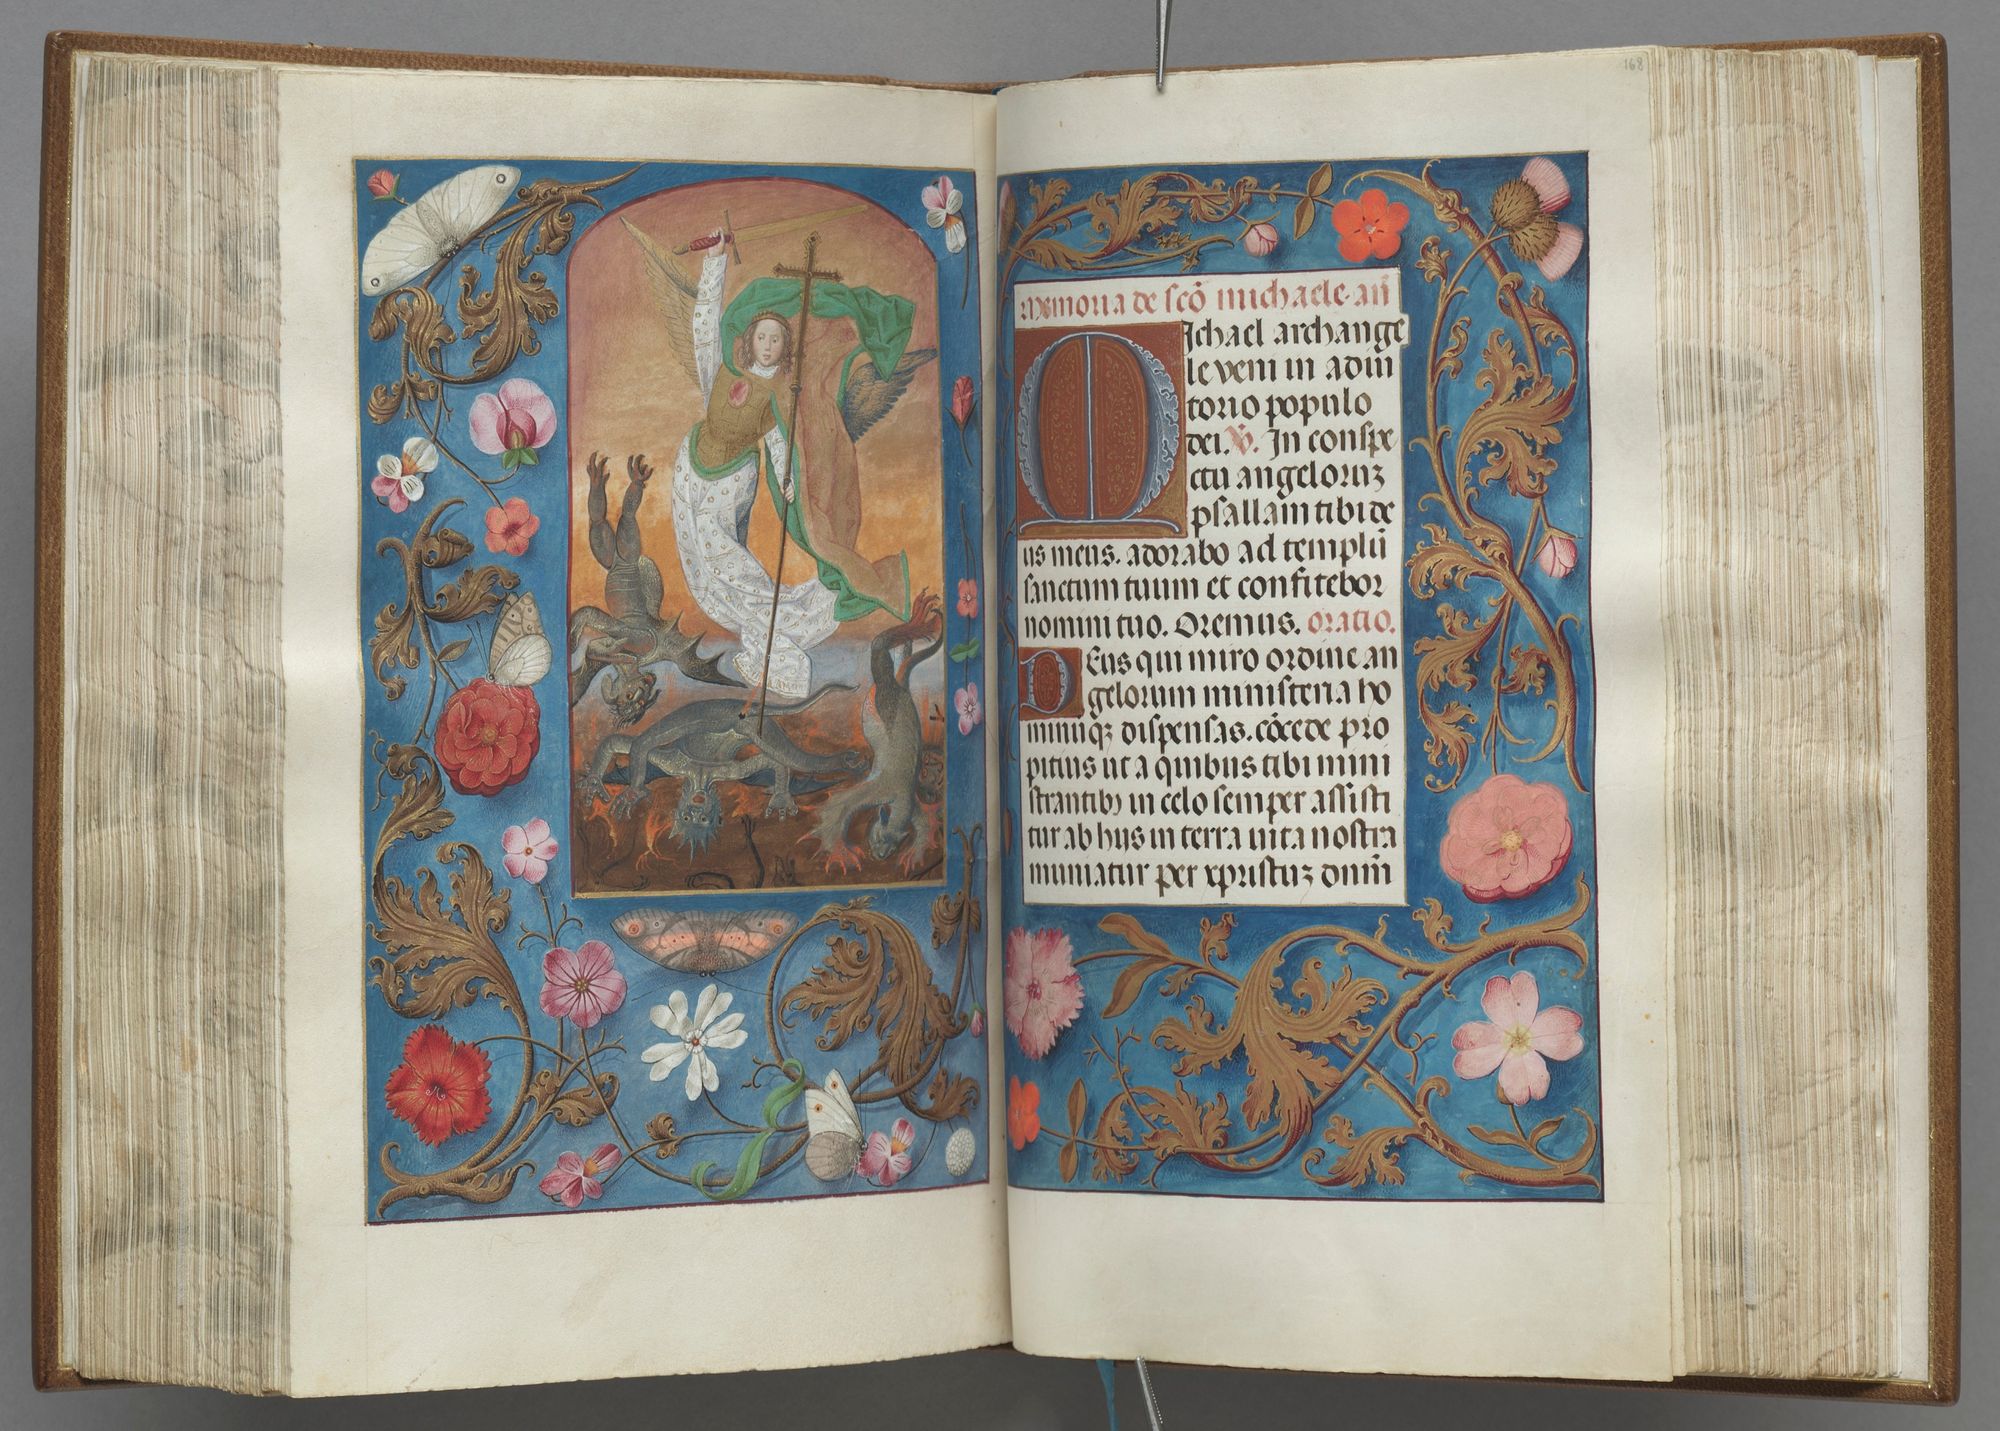 168
Memoria de scō michaele. an̄
Michael archange
le veni in adiu
torio populo
dei. V̄. In conspe
ctu angelorum
psallam tibi de
us meus. adorabo ad templū
sanctum tuum et confitebor
nomini tuo. Oremus. oratio.
Deus qui miro ordine an
gelorum ministeria ho
minūqꝫ dispensas. cōcede pro
pitius ut a quibus tibi mini
strantibꝫ in celo semper assisti
tur ab hijs in terra uita nostra
muniatur per xpristuꝫ dnm̄